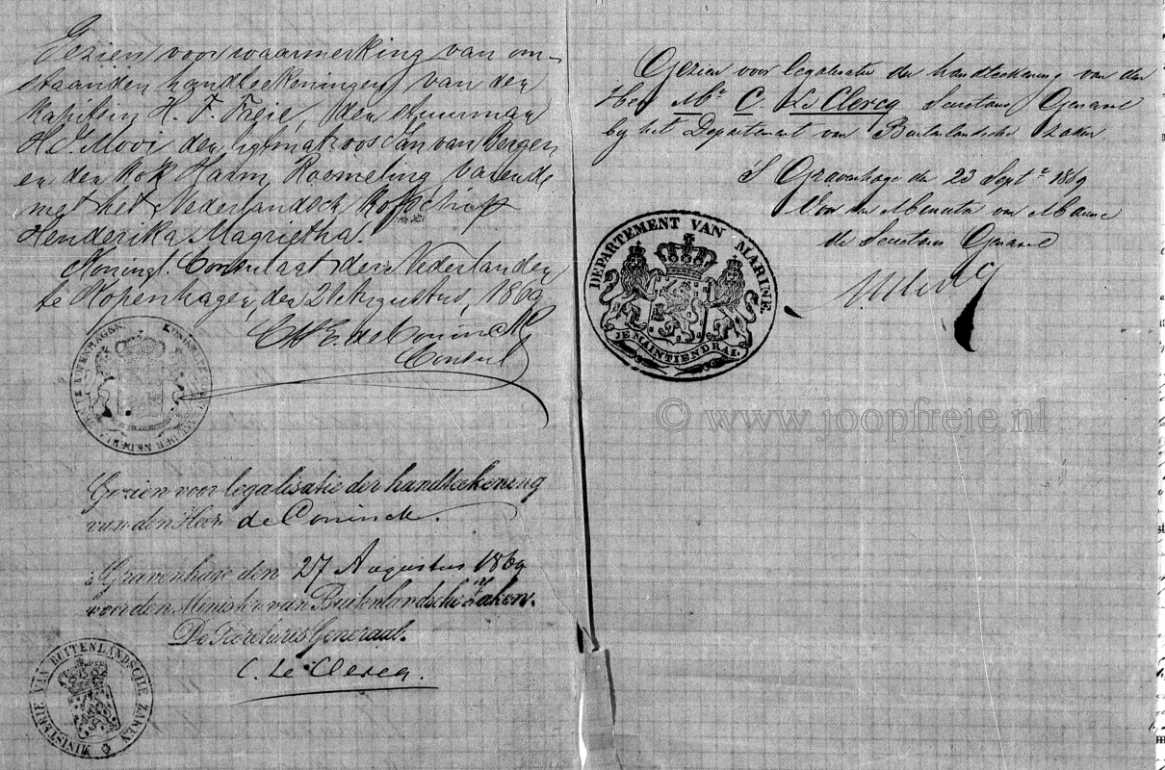 Gezien voor waarmerking van om-
staande handteekeningen van den
Kapitein H. F. Freie, den stuurman
H. J. Mooi den ligtmatroos Jan van Bergen
en den kok Harm Roemeling varende
met het Nederlandsch Kofschip
Henderika Magrietha.
Koningl. Consulaat der Nederlanden
te Kopenhagen, den 21 Augustus, 1869
de Coninck
Consul
Gezien voor legalisatie der handteekening
van den Heer de Coninck.
's Gravenhage den 27 Augustus 1869
voor den Minister van Buitenlandsche Zaken.
De Secretaris Generaal.
C. Le Clercq.
MINISTERIE VAN BUITENLANDSCHE ZAKEN
Gezien voor legalisatie der handteekening van den
Heer Mr. C. Le Clercq Secretaris Generaal
bij het Departement van Buitenlandsche Zaken
's Gravenhage den 23 Septr 1869
Voor den Minister van Marine
de Secretaris Generaal
DEPARTEMENT VAN MARINE.
JE MAINTIENDRAI
© www.joopfreie.nl